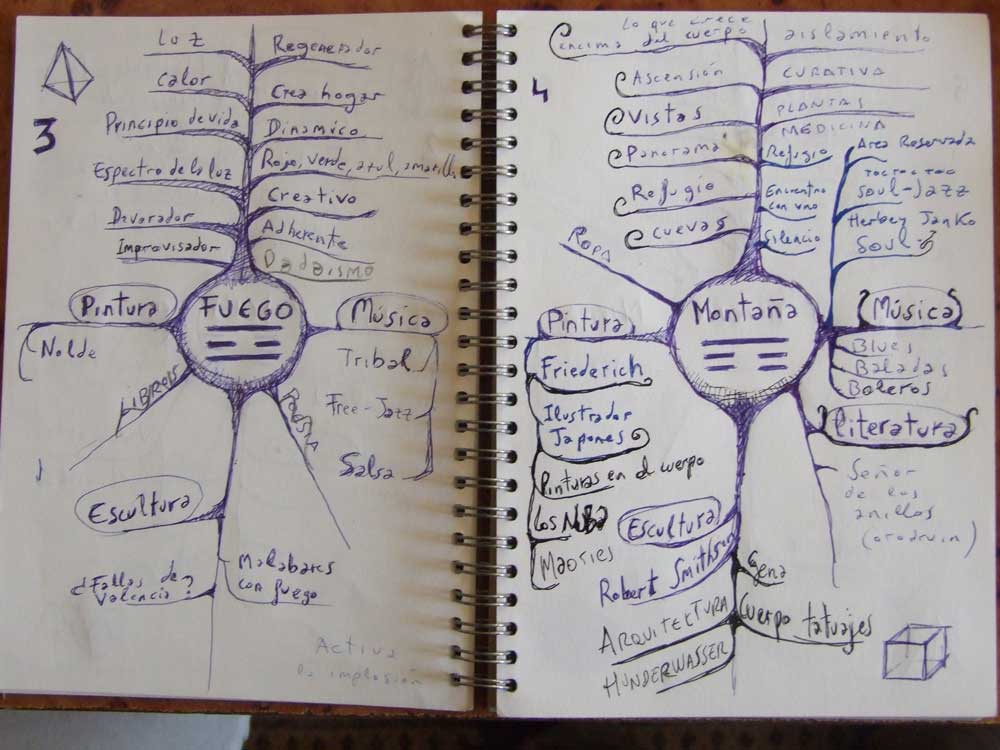 3
Luz
Calor
Principio de vida
Espectro de la luz
Devorador
Improvisador
Regenerador
Crea hogar
Dinámico
Rojo, verde, azul, amarillo
Creativo
Adherente
Dadaismo
FUEGO
Pintura
Nolde
LIBROS
POESIA
Música
Tribal
Free-Jazz
Salsa
Escultura
¿Fallas de
Valencia?
Malabares
con fuego
Activa
la implosión
4
Lo que crece
encima del cuerpo
Ascensión
Vistas
Panorama
Refugio
Cuevas
ROPA
aislamiento
CURATIVA
PLANTAS
MEDICINA
Refugio
Encuentro
con uno
Silencio
Area Reservada
SOUL-JAZZ
Herbey Janko
SOUL
Montaña
Pintura
Friederich
Ilustrador
Japones
Pinturas en el cuerpo
Los NUBA
Maories
Música
Blues
Baladas
Boleros
Literatura
Señor
de los
anillos
(orodruin)
Escultura
Robert Smithson
ARQUITEKTURA
HUNDERWASSER
Gena
Cuerpo tatuajes